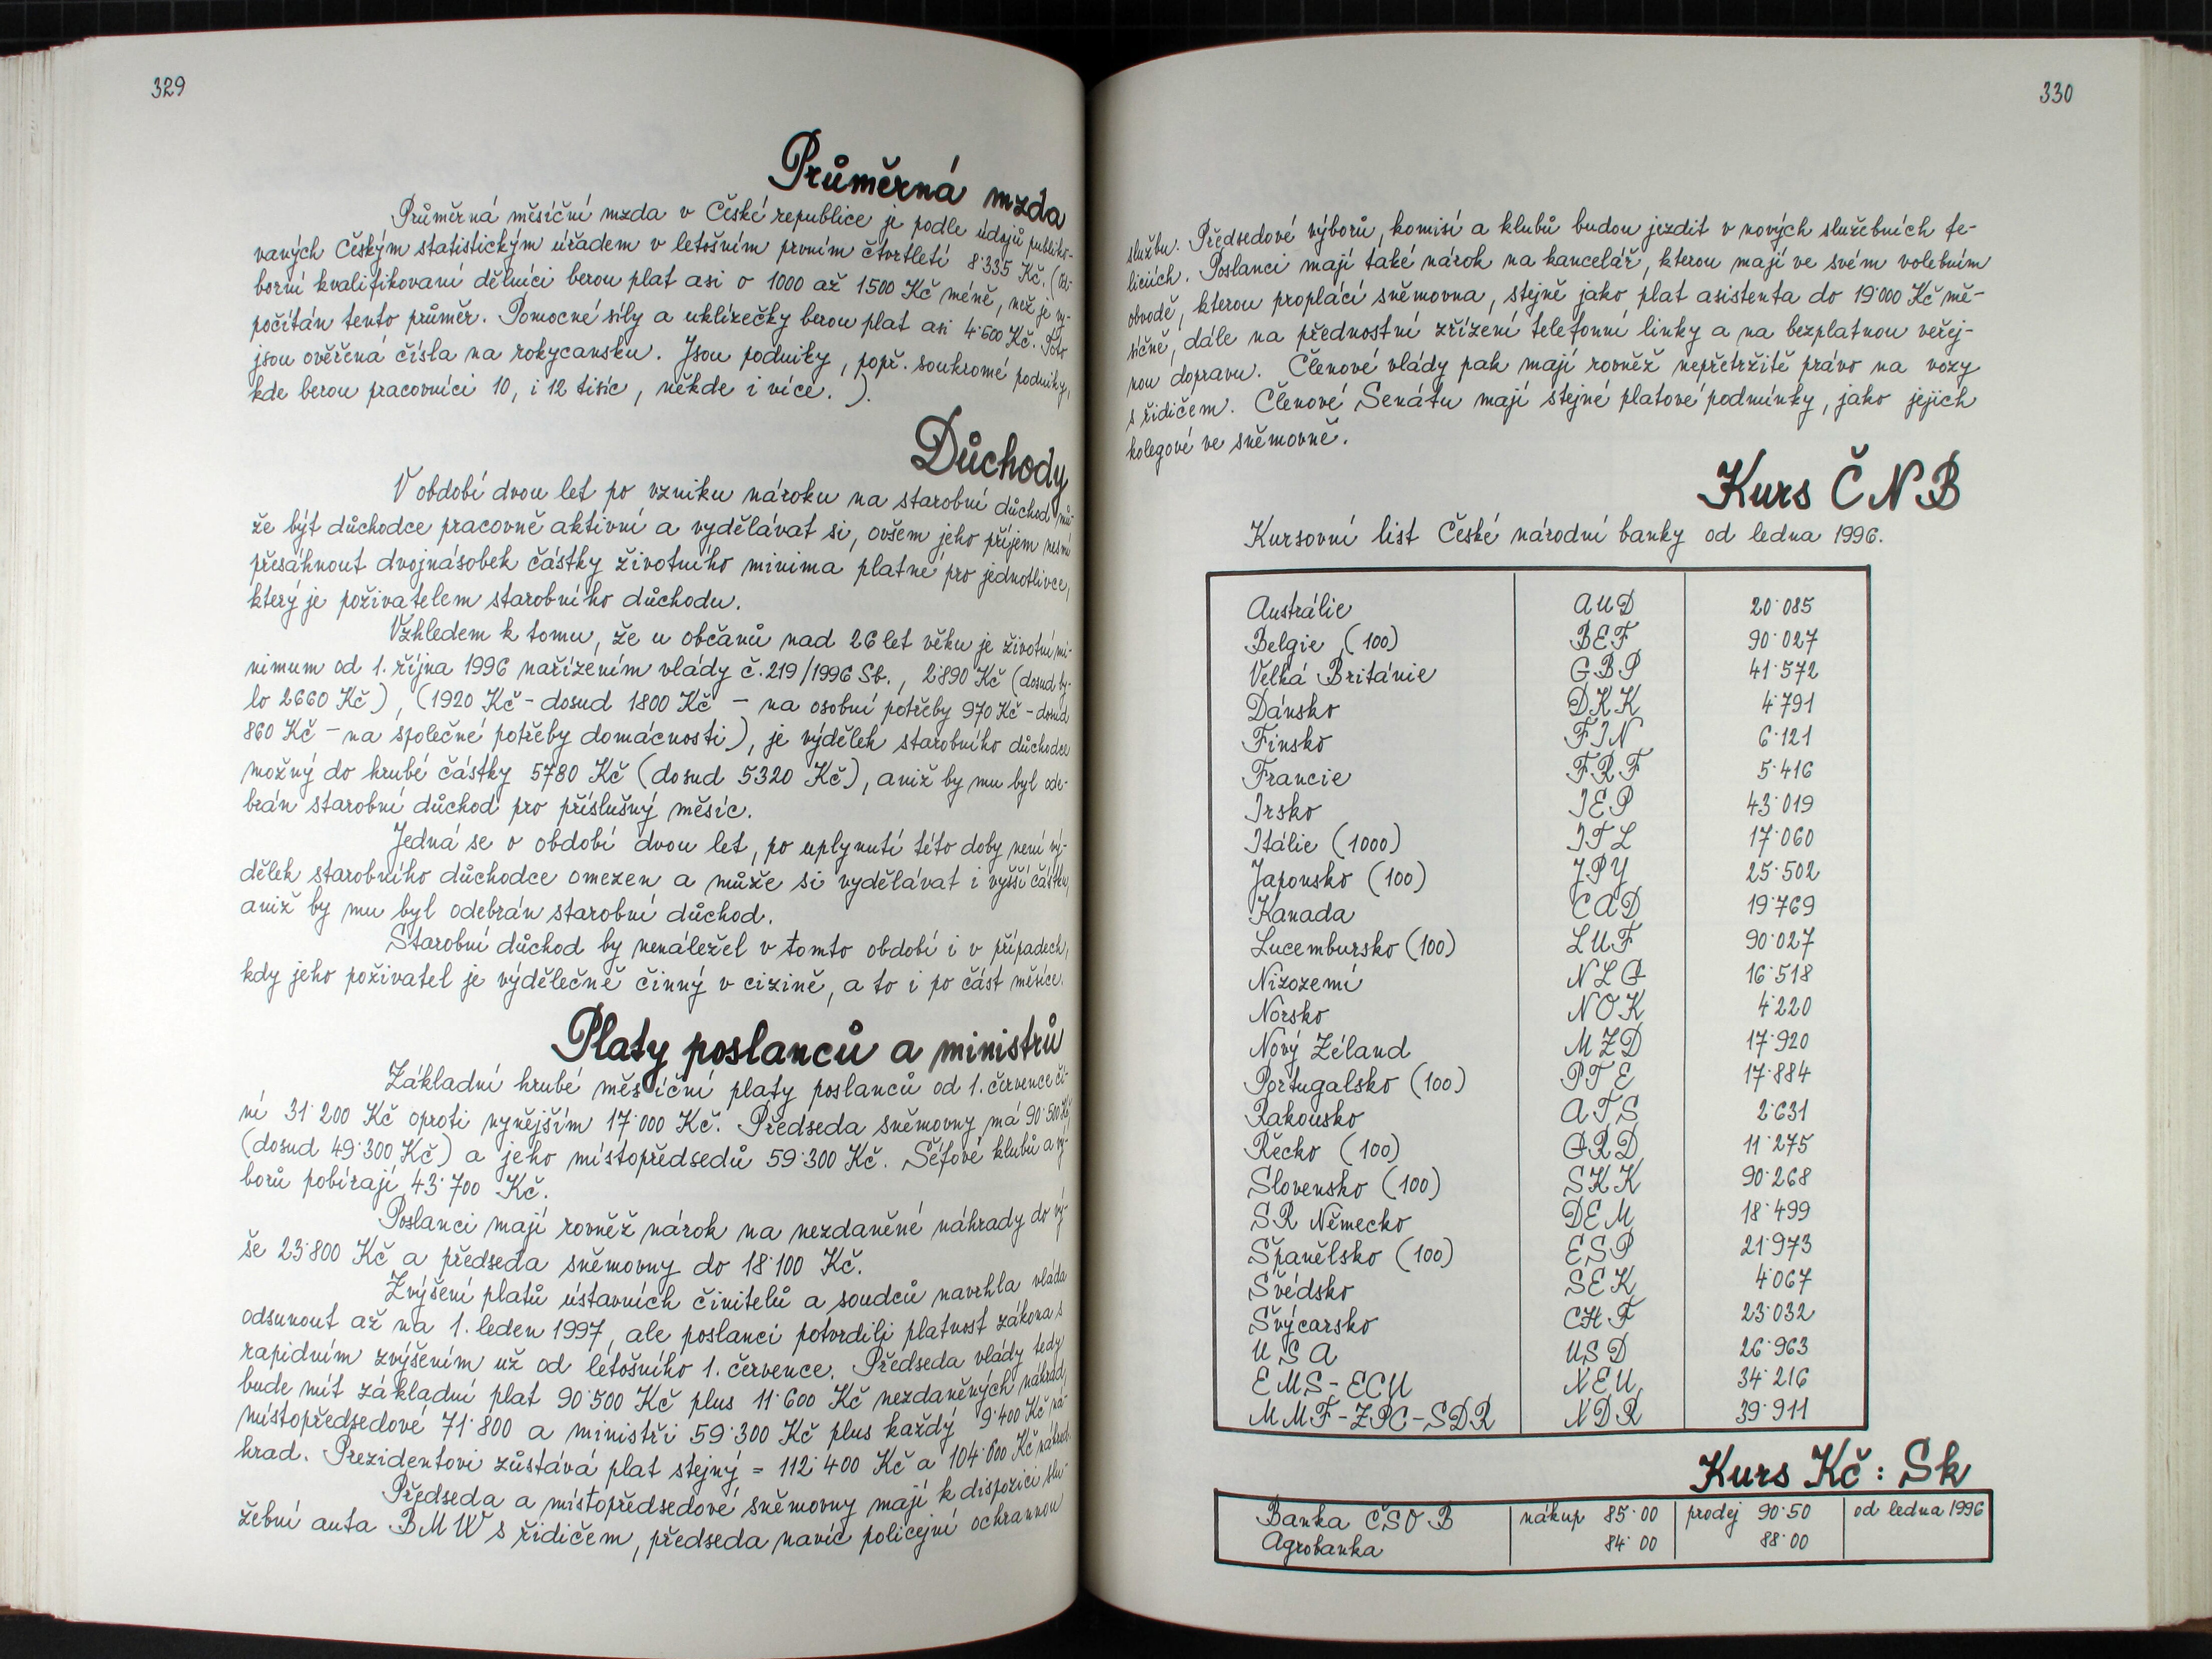 329
Průměrná mzda
Průměrná měsíční mzda v České republice je podle údajů publiko-
vaných Českým statistickým úřadem v letošním prvním čtvrtletí 8˙335 Kč. (Od-
borní kvalifikovaní dělníci berou plat asi o 1000 až 1500 Kč méně, než je vy-
počítán tento průměr. Pomocné síly a uklízečky berou plat asi 4˙600 Kč. Toto
jsou ověřená čísla na rokycansku. Jsou podniky, popř. soukromé podniky,
kde berou pracovníci 10, i 12 tisíc, někde i více. ).
Důchody
V období dvou let po vzniku nároku na starobní důchod mů-
že být důchodce pracovně aktivní a vydělávat si, ovšem jeho příjem nesmí
přesáhnout dvojnásobek částky životního minima platné pro jednotlivce,
který je poživatelem starobního důchodu.
Vzhledem k tomu, že u občanů nad 26 let věku je životní mi-
nimum od 1. října 1996 nařízením vlády č. 219/1996 Sb., 2˙890 Kč (dosud by-
lo 2660 Kč), (1920 Kč - dosud 1800 Kč - na osobní potřeby 970 Kč - dosud
860 Kč - na společné potřeby domácnosti), je výdělek starobního důchodce
možný do hrubé částky 5780 Kč (dosud 5320 Kč), aniž by mu byl ode-
brán starobní důchod pro příslušný měsíc.
Jedná se o období dvou let, po uplynutí této doby není vý-
dělek starobního důchodce omezen a může si vydělávat i vyšší částku,
aniž by mu byl odebrán starobní důchod.
Starobní důchod by nenáležel v tomto období i v případech,
kdy jeho poživatel je výdělečně činný v cizině, a to i po část měsíce.
Platy poslanců a ministrů
Základní hrubé měsíční platy poslanců od 1. července či-
ní 31˙200 Kč oproti nynějším 17˙000 Kč. Předseda sněmovny má 90˙500 Kč
(dosud 49˙300 Kč) a jeho místopředsedů 59˙300 Kč. Šéfové klubů a vý-
borů pobírají 43˙700 Kč.
Poslanci mají rovněž nárok na nezdaněné náhrady do vý-
še 23˙800 Kč a předseda sněmovny do 18˙100 Kč.
Zvýšení platů ústavních činitelů a soudců navrhla vláda
odsunout až na 1. leden 1997, ale poslanci potvrdili platnost zákona s
rapidním zvýšením už od letošního 1. července. Předseda vlády tedy
bude mít základní plat 90˙500 Kč plus 11˙600 Kč nezdaněných náhrad,
místopředsedové 71˙800 a ministři 59˙300 Kč plus každý 9˙400 Kč ná-
hrad. Prezidentovi zůstává plat stejný = 112˙400 Kč a 104˙600 Kč náhrad.
Předseda a místopředsedové sněmovny mají k dispozici slu-
žební auta BMW s řidičem, předseda navíc policejní ochrannou
330
službu. Předsedové výborů, komisí a klubů budou jezdit v nových služebních fe-
liciích. Poslanci mají také nárok na kancelář, kterou mají ve svém volebním
obvodě, kterou proplácí sněmovna, stejně jako plat asistenta do 19˙000 Kč mě-
síčně, dále na přednostní zřízení telefonní linky a na bezplatnou veřej-
nou dopravu. Členové vlády pak mají rovněž nepřetržité právo na vozy
s řidičem. Členové Senátu mají stejné platové podmínky, jako jejich
kolegové ve sněmovně.
Kurs ČNB
Kursovní list České národní banky od ledna 1996.
Austrálie AUD 20˙085
Belgie (100) BEF 90˙027
Velká Británie GBP 41˙572
Dánsko DKK 4˙791
Finsko FIN 6˙121
Francie FRF 5˙416
Irsko IEP 43˙019
Itálie (1000) ITL 17˙060
Japonsko (100) JPY 25˙502
Kanada CAD 19˙769
Lucembursko (100) LUF 90˙027
Nizozemí NLG 16˙518
Norsko NOK 4˙220
Nový Zéland MZD 17˙920
Portugalsko (100) PTE 17˙884
Rakousko ATS 2˙631
Řecko (100) GRD 11˙275
Slovensko (100) SKK 90˙268
SR Německo DEM 18˙499
Španělsko (100) ESP 21˙973
Švédsko SEK 4˙067
Švýcarsko CHF 23˙032
USA USD 26˙963
EMS-ECU NEU 34˙216
MMF-ZPC-SDR NDR 39˙911
Kurs Kč : Sk
Banka ČSOB nákup 85˙00 prodej 90˙50 od ledna 1996
Agrobanka 84˙00 88˙00